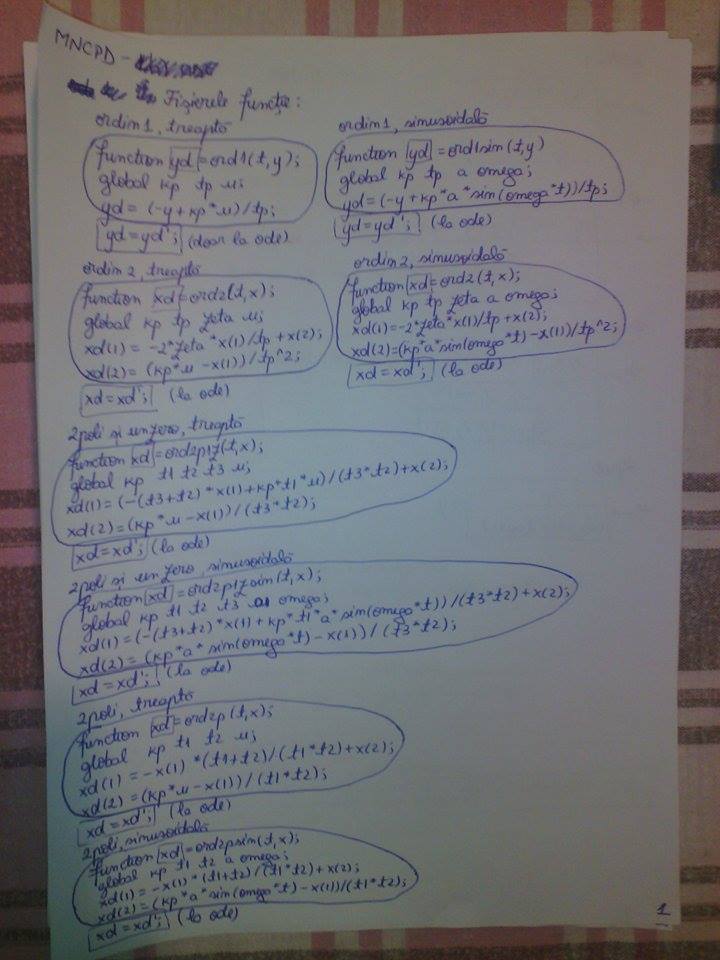 MNCPD -
Fișierele funcție :
ordin 1, treaptă
function yd = ord1(t,y);
global kp tp u;
yd = (-y+kp*u)/tp;
yd = yd'; (doar la ode)
ordin 1, sinusoidală
function yd = ord1sin(t,y)
global kp tp a omega;
yd = (-y+kp*a*sin(omega*t))/tp;
yd = yd'; (la ode)
ordin 2, treaptă
function xd = ord2(t,x);
global kp tp zeta u;
xd(1) = -2*zeta*x(1)/tp + x(2);
xd(2) = (kp*u - x(1))/tp^2;
xd = xd'; (la ode)
ordin 2, sinusoidală
function xd = ord2(t,x);
global kp tp zeta a omega;
xd(1) = -2*zeta*x(1)/tp + x(2);
xd(2) = (kp*a*sin(omega*t) - x(1))/tp^2;
xd = xd'; (la ode)
2 poli și un zero, treaptă
function xd = ord2p1z(t,x);
global kp t1 t2 t3 u;
xd(1) = (-(t3+t2)*x(1)+kp*t1*u)/(t3*t2)+x(2);
xd(2) = (kp*u - x(1))/(t3*t2);
xd = xd'; (la ode)
2 poli și un zero, sinusoidală
function xd = ord2p1zsin(t,x);
global kp t1 t2 t3 a omega;
xd(1) = (-(t3+t2)*x(1)+kp*t1*a*sin(omega*t))/(t3*t2)+x(2);
xd(2) = (kp*a*sin(omega*t) - x(1))/(t3*t2);
xd = xd'; (la ode)
2 poli, treaptă
function xd = ord2p(t,x);
global kp t1 t2 u;
xd(1) = -x(1)*(t1+t2)/(t1*t2)+x(2);
xd(2) = (kp*u - x(1))/(t1*t2);
xd = xd'; (la ode)
2 poli, sinusoidală
function xd = ord2psin(t,x);
global kp t1 t2 a omega;
xd(1) = -x(1)*(t1+t2)/(t1*t2)+x(2);
xd(2) = (kp*a*sin(omega*t) - x(1))/(t1*t2);
xd = xd'; (la ode)
1